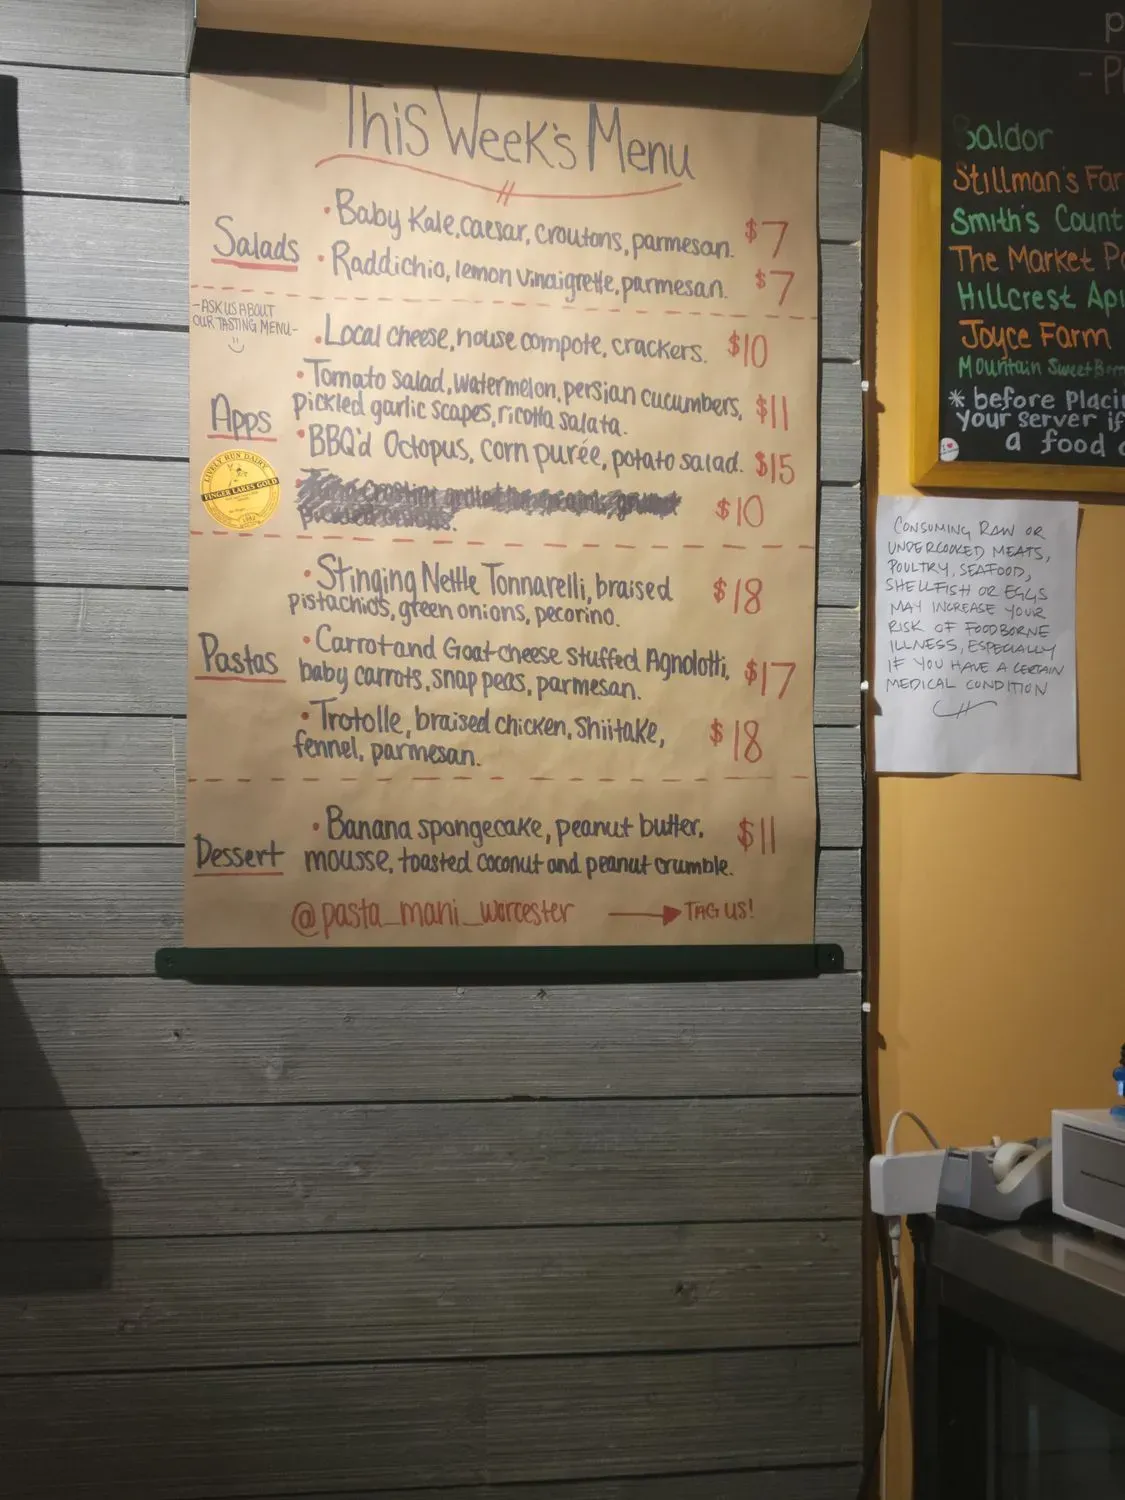 This Week's Menu
Salads
• Baby Kale, caesar, croutons, parmesan. $7
• Raddichio, lemon vinaigrette, parmesan. $7
-ASK US ABOUT
OUR TASTING MENU-
Apps
• Local cheese, house compote, crackers. $10
• Tomato salad, watermelon, persian cucumbers,
pickled garlic scapes, ricotta salata. $11
• BBQ'd Octopus, corn purée, potato salad. $15
$10
LIVELY RUN DAIRY
FINGER LAKES GOLD
Pastas
• Stinging Nettle Tonnarelli, braised
pistachios, green onions, pecorino. $18
• Carrot and Goat cheese stuffed Agnolotti,
baby carrots, snap peas, parmesan. $17
• Trotolle, braised chicken, Shiitake,
fennel, parmesan. $18
Dessert
• Banana spongecake, peanut butter,
mousse, toasted coconut and peanut crumble. $11
@pasta_mani_worcester → TAG US!
Baldor
Stillman's Far
Smith's Count
The Market Pa
Hillcrest Api
Joyce Farm
Mountain Sweet Ber
* before Placi
your server if
a food
CONSUMING RAW OR
UNDERCOOKED MEATS,
POULTRY, SEAFOOD,
SHELLFISH OR EGGS
MAY INCREASE YOUR
RISK OF FOODBORNE
ILLNESS, ESPECIALLY
IF YOU HAVE A CERTAIN
MEDICAL CONDITION